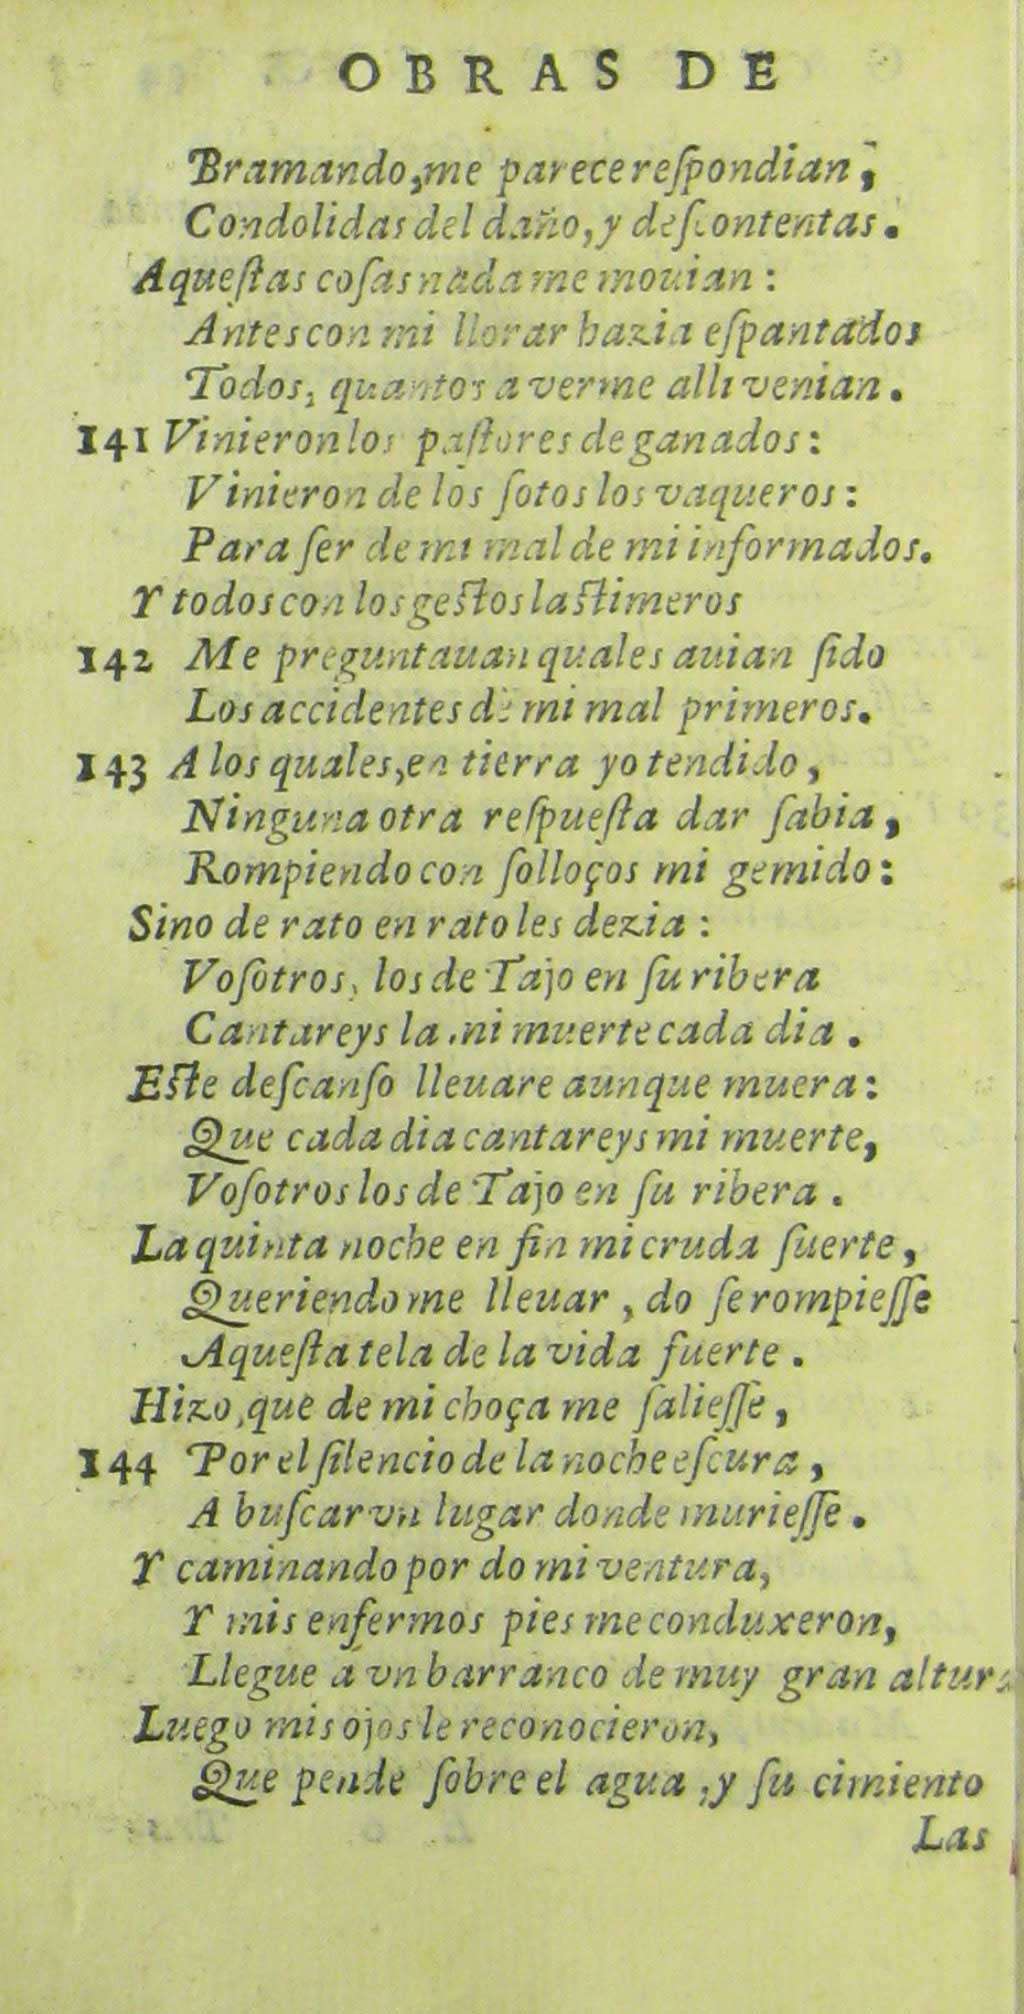 OBRAS DE
Bramando, me parece reſpondian,
Condolidas del daño, y deſcontentas.
Aqueſtas coſas nada me mouian:
Antes con mi llorar hazia eſpantados
Todos, quantos a verme alli venian.
141 Vinieron los paſtores de ganados:
Vinieron de los ſotos los vaqueros:
Para ſer de mi mal de mi informados.
Y todos con los geſtos laſtimeros
142 Me preguntauan quales auian ſido
Los accidentes de mi mal primeros.
143 A los quales, en tierra yo tendido,
Ninguna otra reſpueſta dar ſabia,
Rompiendo con ſolloços mi gemido:
Sino de rato en rato les dezia:
Voſotros, los de Tajo en ſu ribera
Cantareys la mi muerte cada dia.
Eſte deſcanſo lleuare aunque muera:
Que cada dia cantareys mi muerte,
Voſotros los de Tajo en ſu ribera.
La quinta noche en fin mi cruda ſuerte,
Queriendome lleuar, do ſe rompieſſe
Aqueſta tela de la vida fuerte.
Hizo, que de mi choça me ſalieſſe,
144 Por el ſilencio de la noche eſcura,
A buſcar vn lugar donde murieſſe.
Y caminando por do mi ventura,
Y mis enfermos pies me conduxeron,
Llegue a vn barranco de muy gran altura
Luego mis ojos le reconocieron,
Que pende ſobre el agua, y ſu cimiento
Las